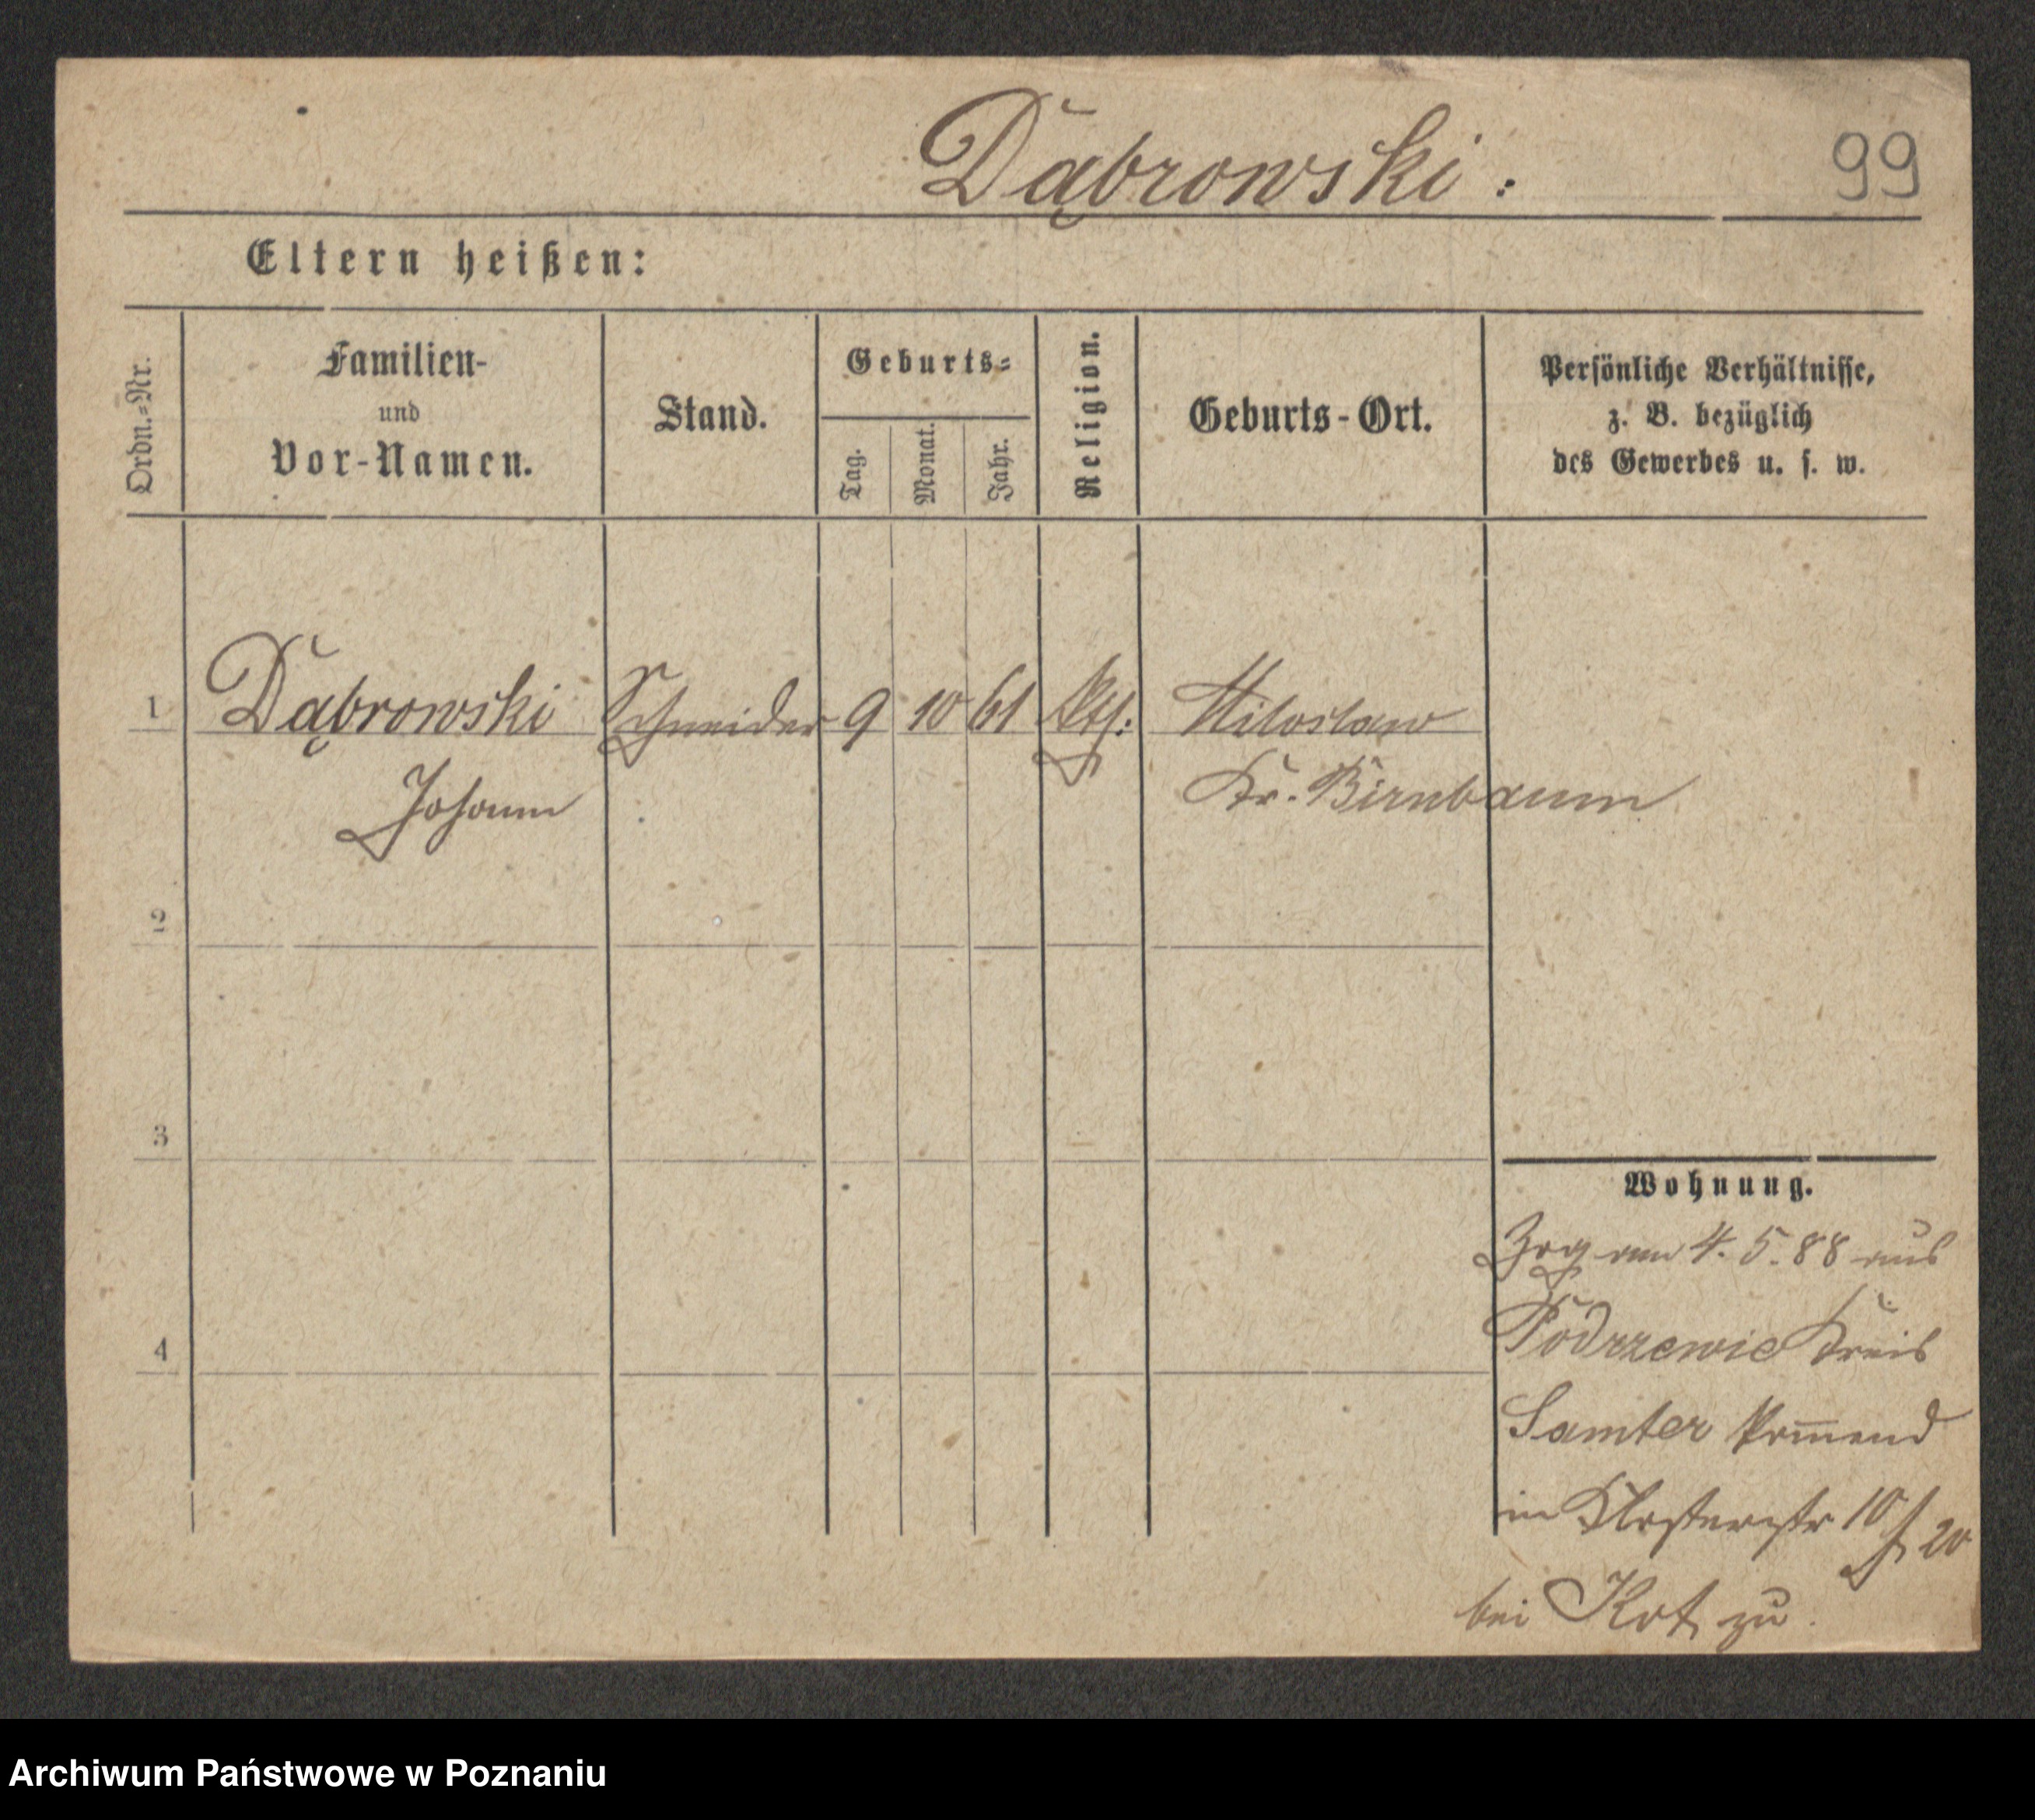 Dąbrowski:
99
Eltern heißen:
Ordn.-Nr.
Familien-
und
Vor-Namen.
Stand.
Geburts-
Tag.
Monat.
Jahr.
Religion.
Geburts-Ort.
Persönliche Verhältnisse,
z. B. bezüglich
des Gewerbes u. s. w.
1 Dąbrowski Schneider 9 10 61 kth: Miloslaw
Johann Kr. Birnbaum
2
3
4
Wohnung.
Zog am 4. 5. 88 aus
Podrzewie Kreis
Samter kom̅end
in Klosterstr 10/20
bei Kot zu.
Archiwum Państwowe w Poznaniu